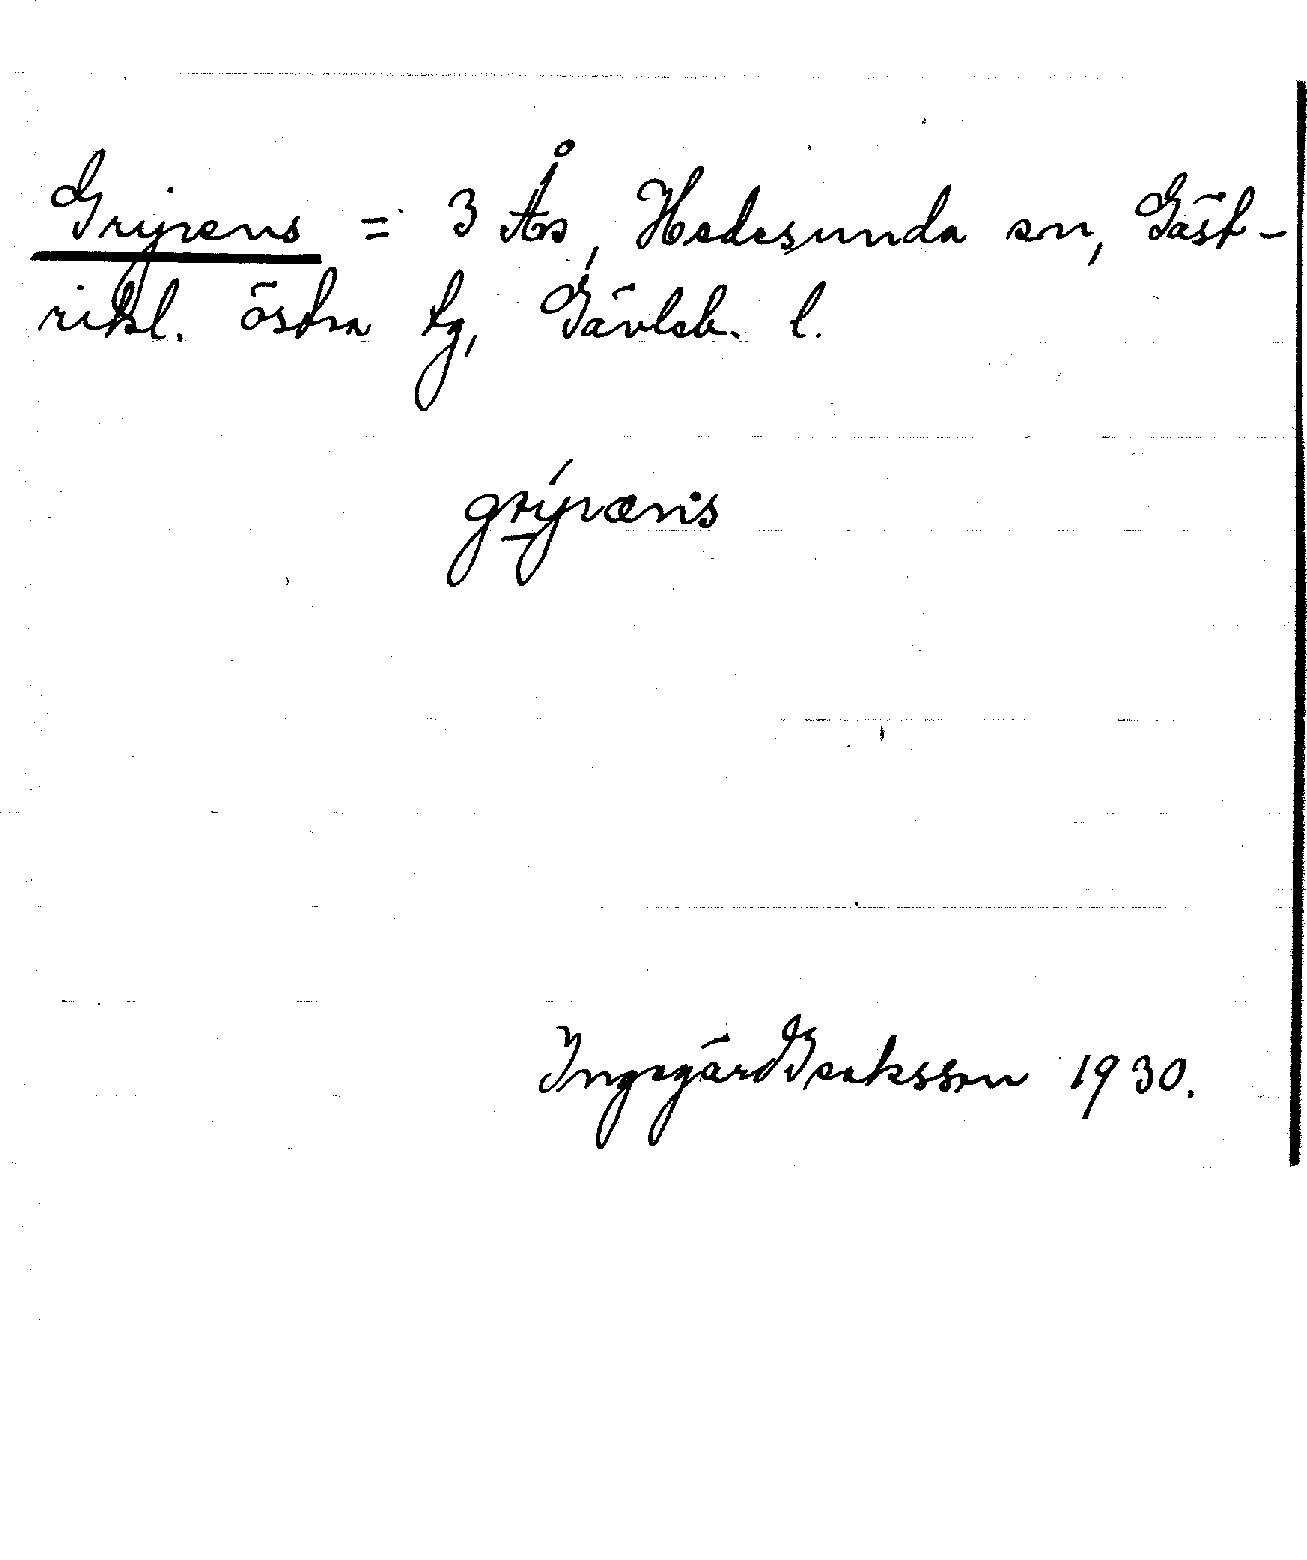 Gryvens = 3 Ås, Hedesunda sn, Gäst-
rikl. östra tg, Gävleb. l.
grývæns
Ingegärd Isaksson 1930.